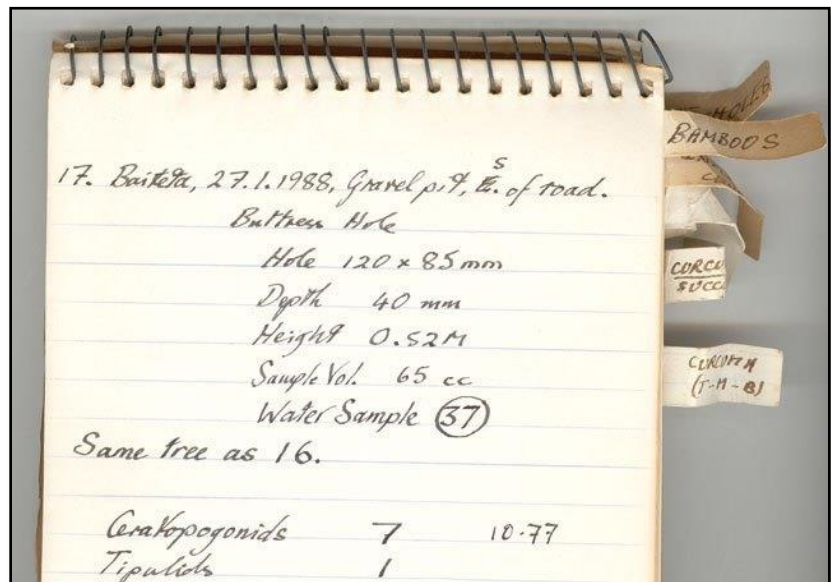 17. Baiteta, 27.1.1988, Gravel pit, S. of road.
Buttress Hole
Hole 120 x 85 mm
Depth 40 mm
Height 0.52M
Sample Vol. 65 cc
Water Sample 37
Same tree as 16.
Ceratopogonids 7 10.77
Tipulids 1
HOLES
BAMBOOS
CURCU
SUCC
CURCUMA
(T-M-B)